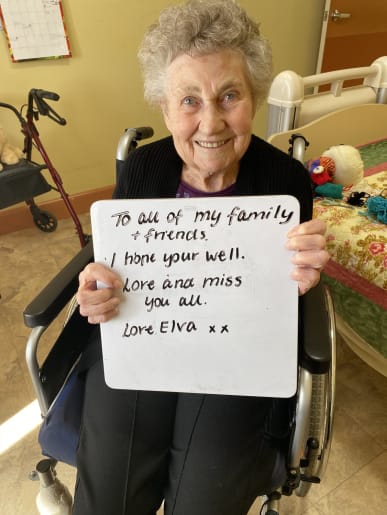 To all of my family
+ friends.
I hope your well.
Love and miss
you all.
Love Elva xx